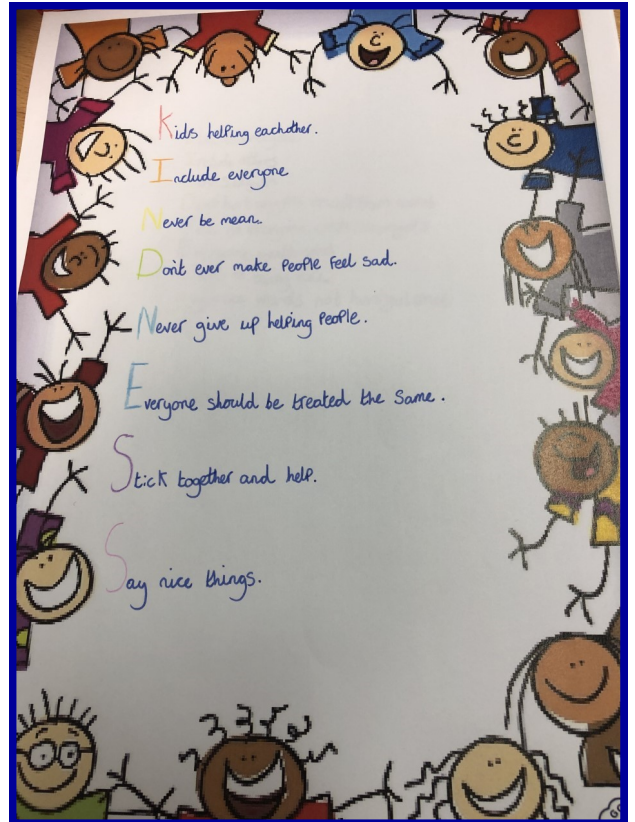 Kids helping eachother.
Include everyone
Never be mean.
Don't ever make people feel sad.
Never give up helping people.
Everyone should be treated the same.
Stick together and help.
Say nice things.